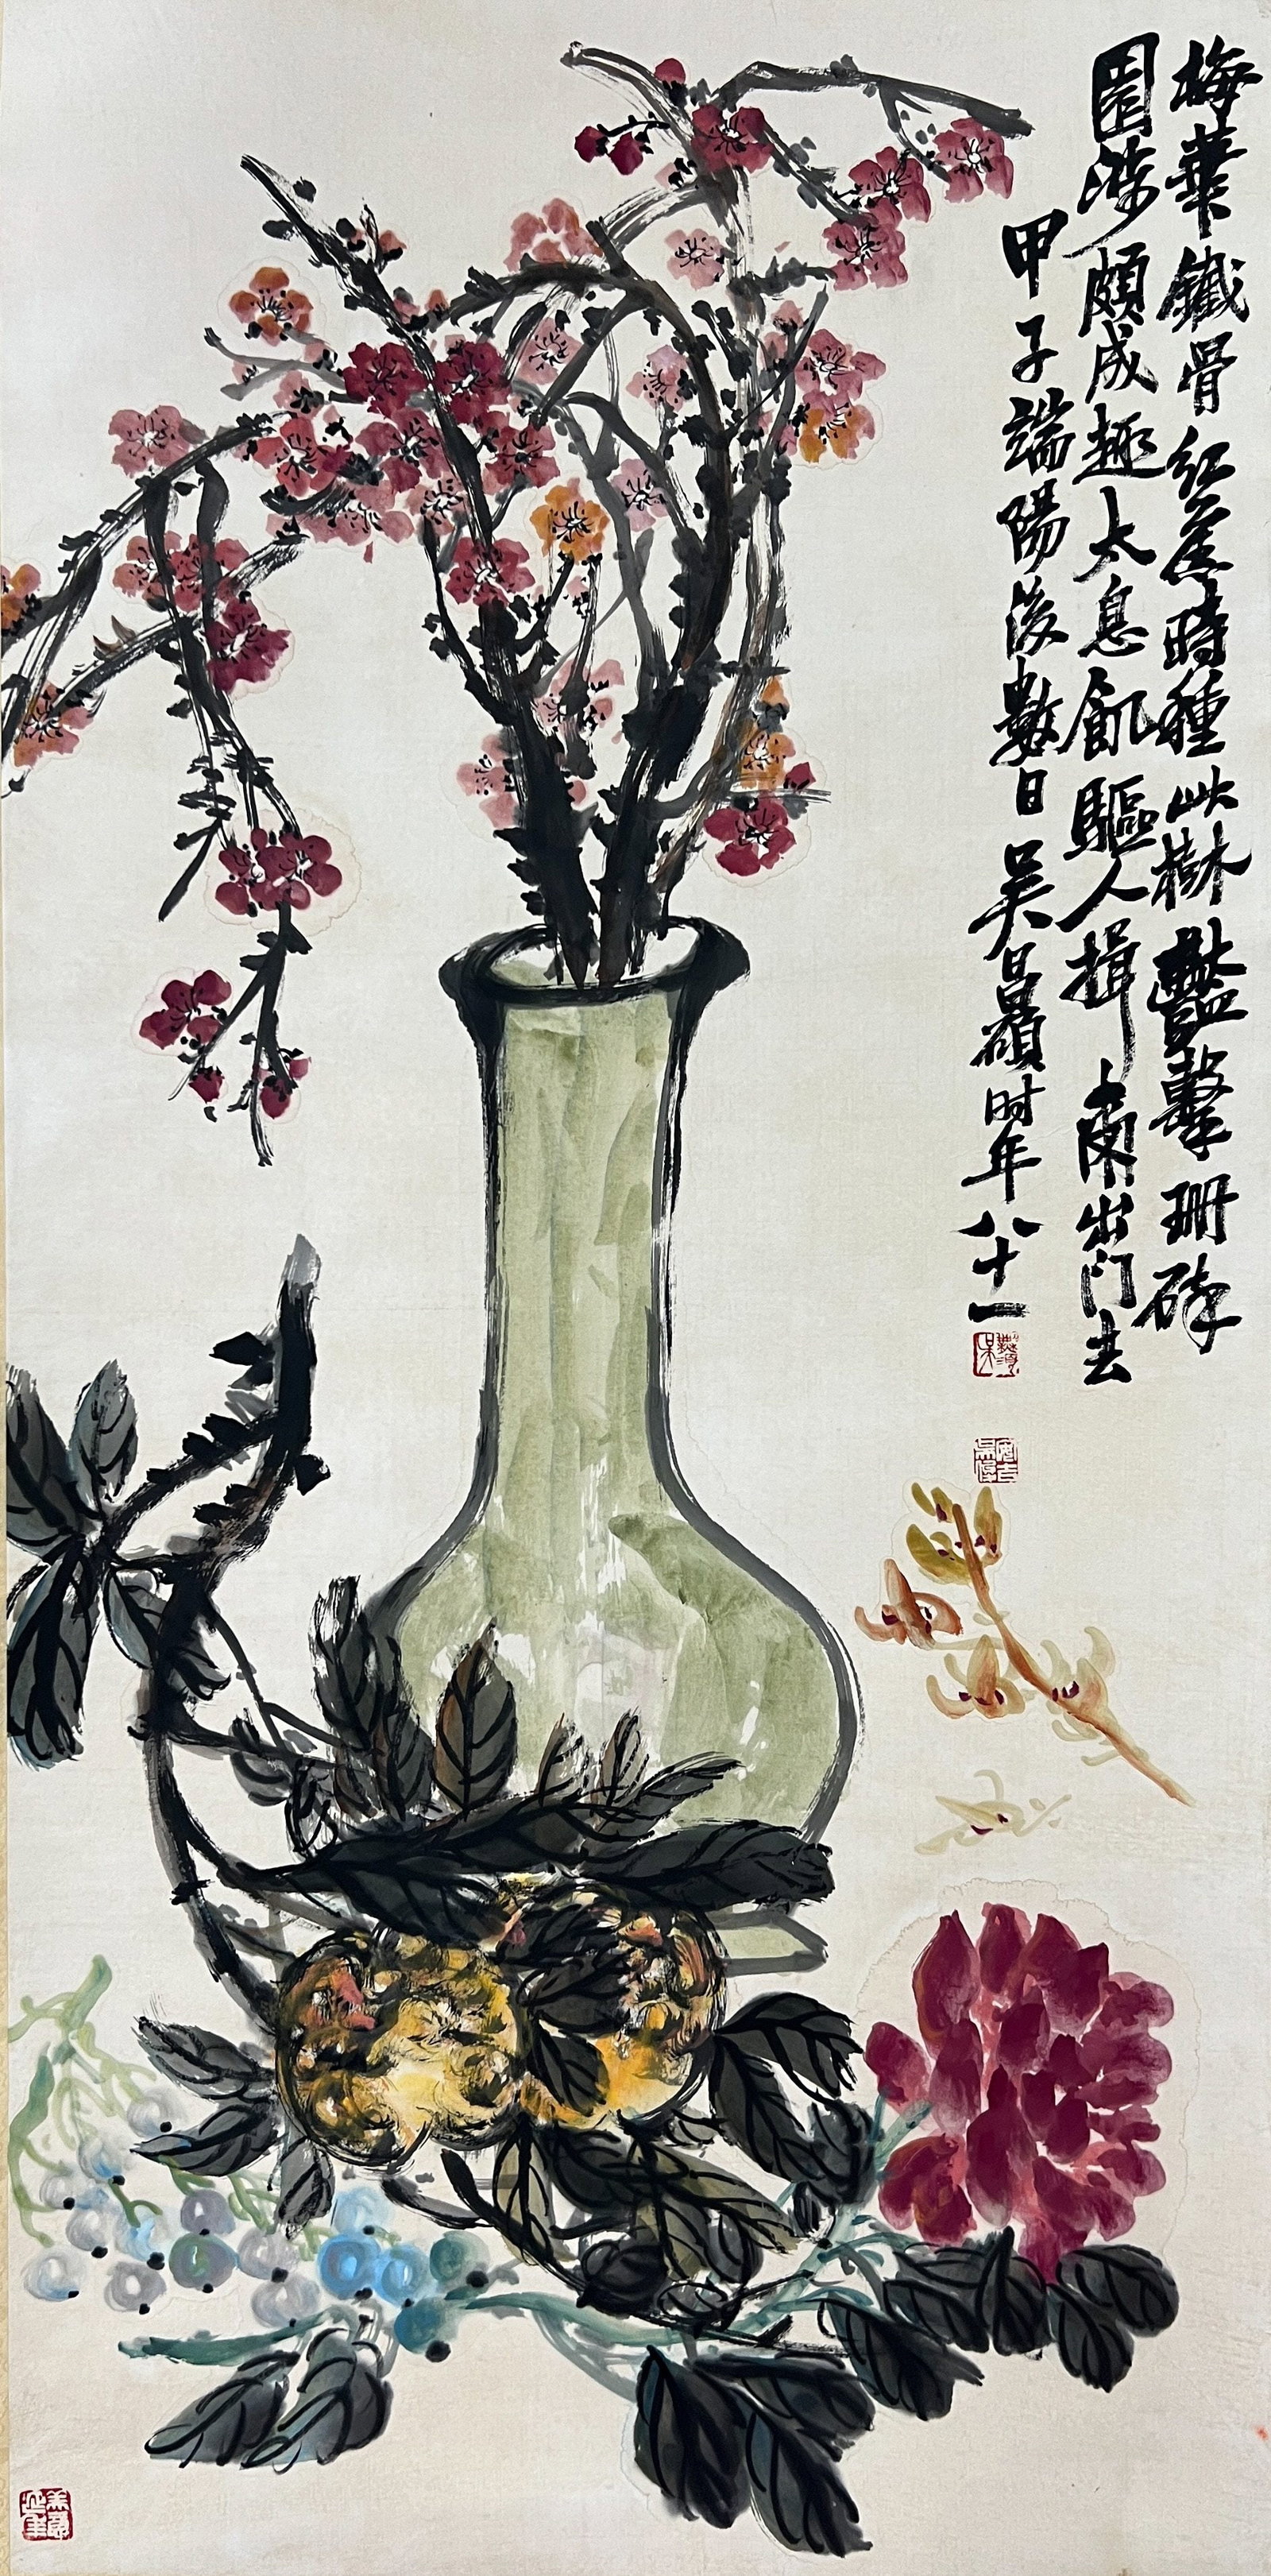 梅華鐵骨紅舊時種此樹艷擊珊碎
園涉頗成趣太息飢驅人揖爾出門去
甲子端陽後數日吳昌碩时年八十一